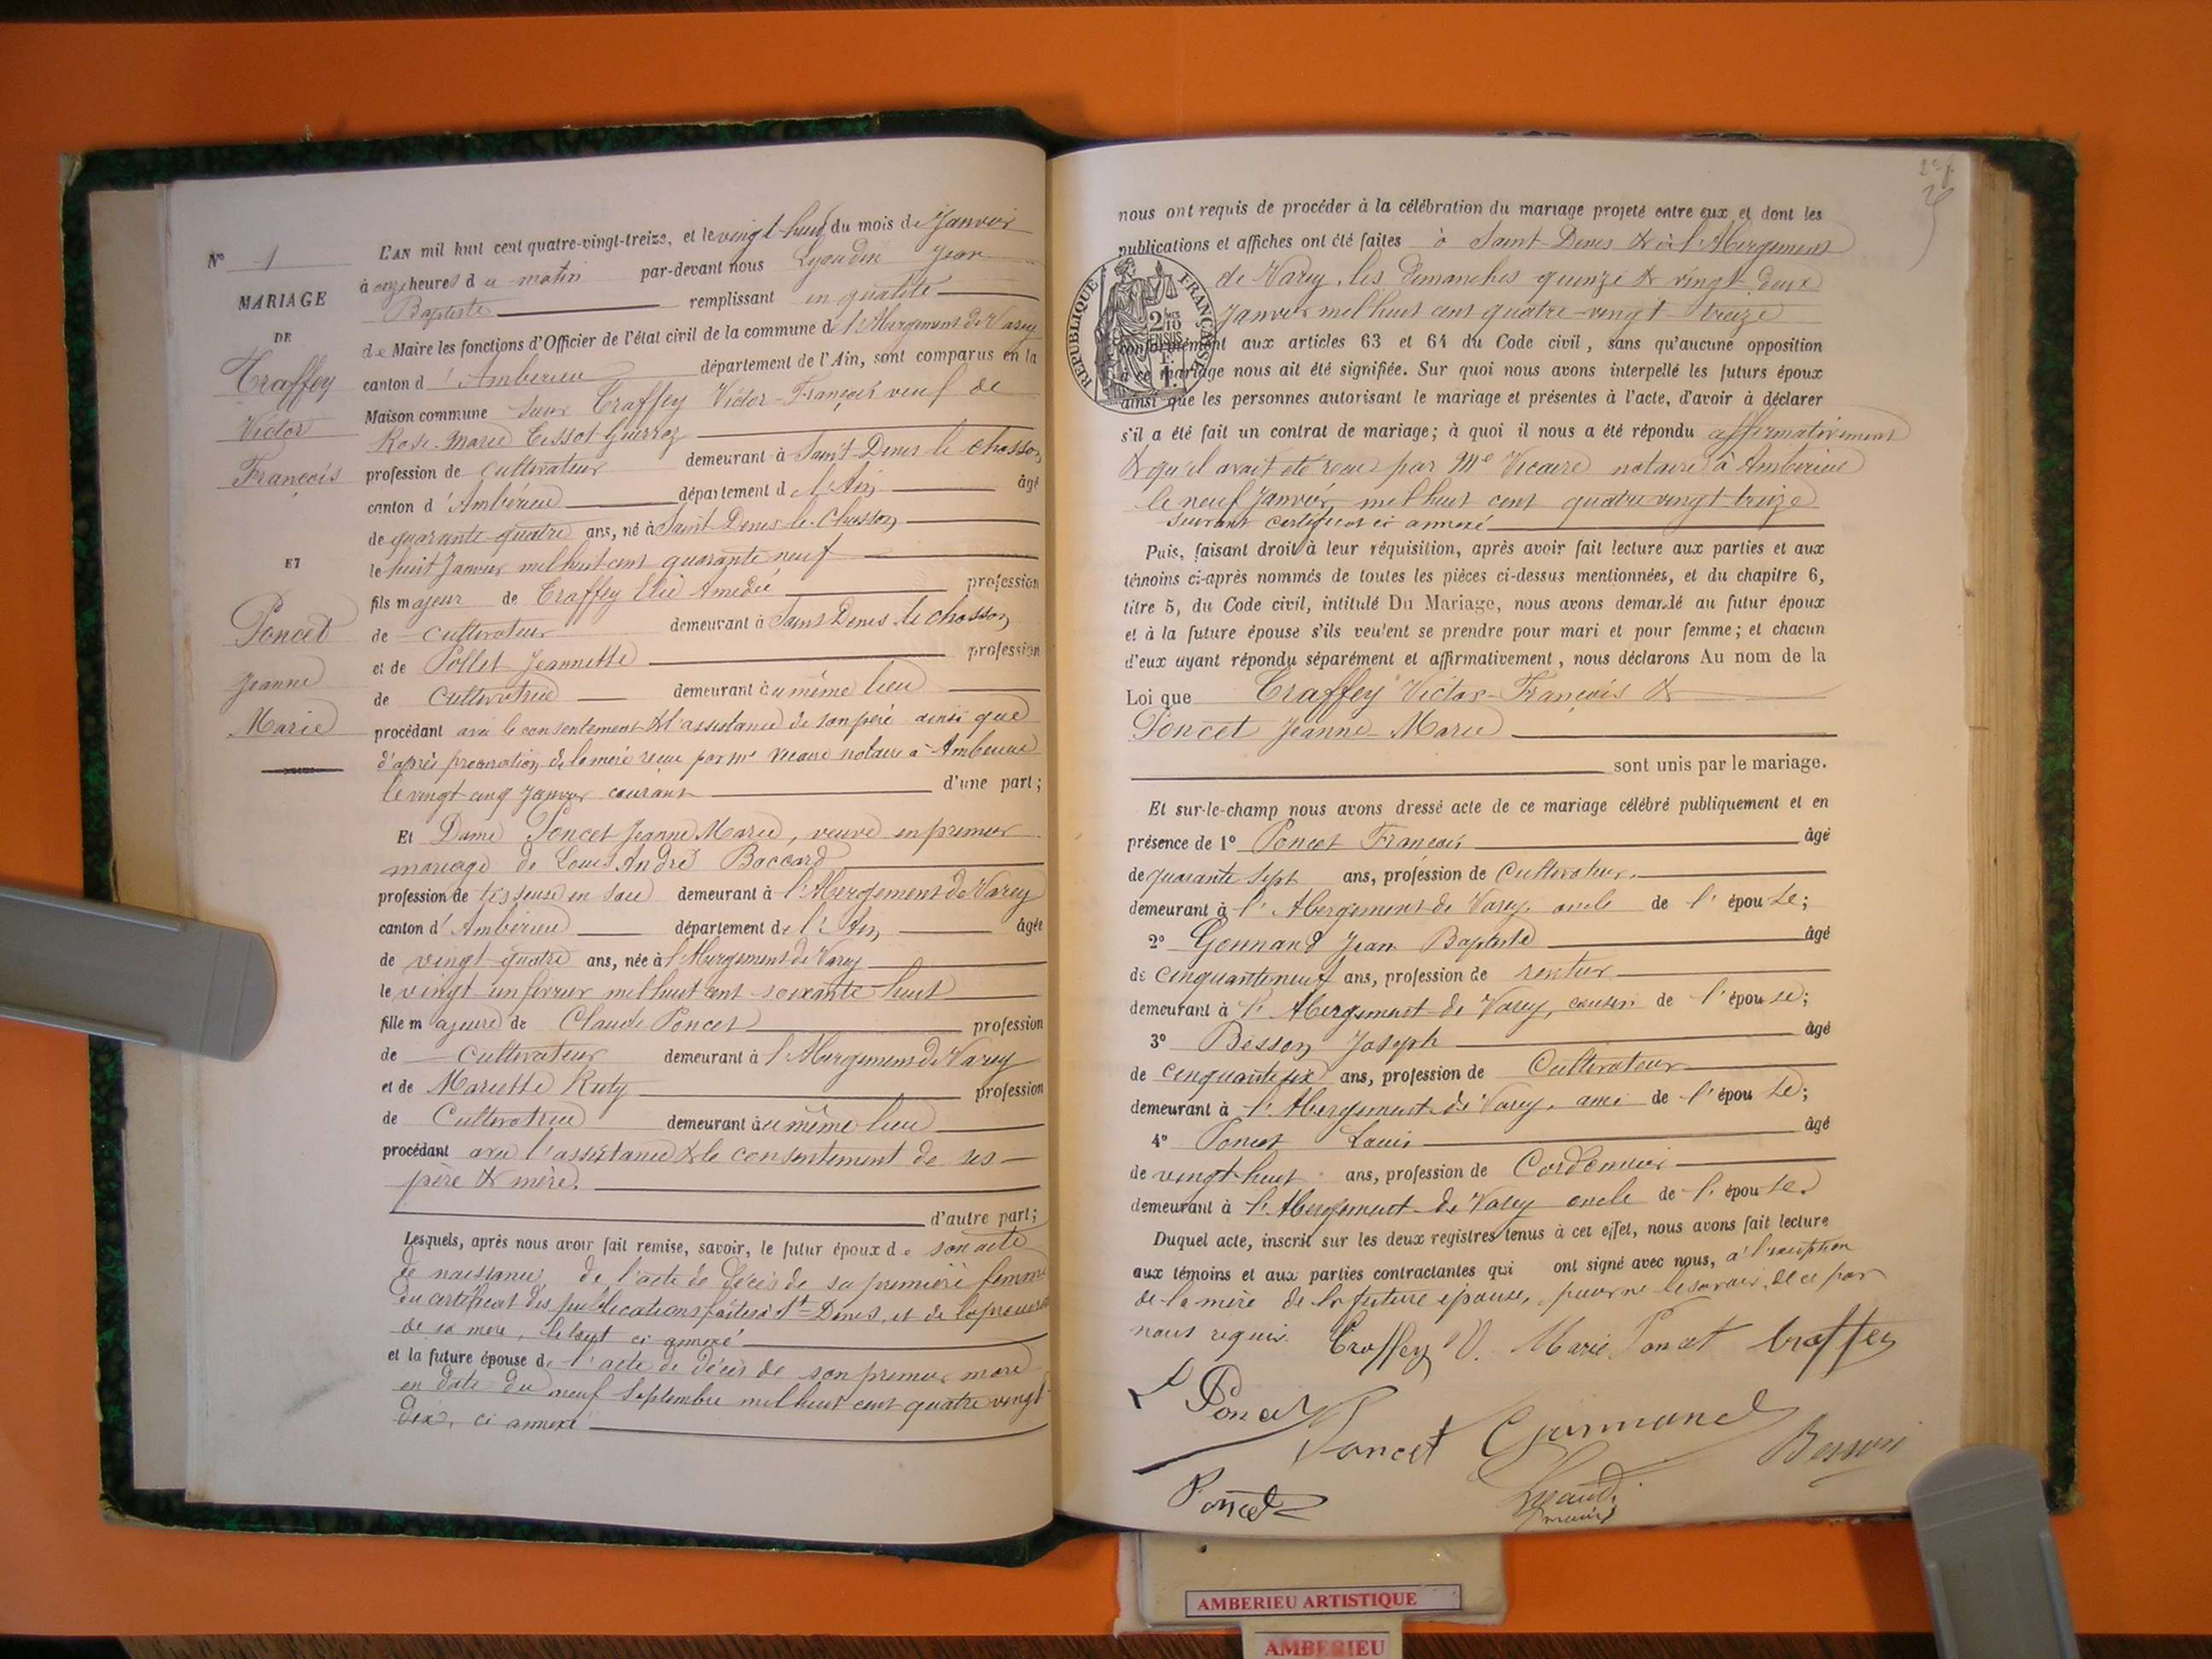 N° 1
MARIAGE
DE
Traffey
Victor
François
ET
Poncet
Jeanne
Marie
L'AN mil huit cent quatre-vingt-treize, et le vingt-huit du mois de Janvier
à onze heures du matin par-devant nous Lyaudin Jean
Baptiste remplissant en qualité
de Maire les fonctions d'Officier de l'état civil de la commune de l'Abergement de Varey
canton d'Ambérieu département de l'Ain, sont comparus en la
Maison commune sieur Traffey Victor-François veuf de
Rose-Marie Tissot-Guerraz
profession de cultivateur demeurant à Saint-Denis le Chosson
canton d'Ambérieu département de l'Ain âgé
de quarante-quatre ans, né à Saint-Denis-le-Chosson
le huit Janvier mil huit cent quarante neuf
fils majeur de Traffey Elie Amédée profession
de cultivateur demeurant à Saint Denis le Chosson
et de Pollet Jeannette profession
de cultivatrice demeurant au même lieu
procédant avec le consentement & l'assistance de son père ainsi que
d'après procuration de la mère reçue par Me Vicaire notaire à Ambérieu
le vingt-cinq Janvier courant d'une part;
Et Dame Poncet Jeanne Marie, veuve en premier
mariage de Louis André Baccard
profession de tisseuse en soie demeurant à l'Abergement de Varey
canton d'Ambérieu département de l'Ain âgée
de vingt-quatre ans, née à l'Abergement de Varey
le vingt-un février mil huit cent soixante-huit
fille majeure de Claude Poncet profession
de cultivateur demeurant à l'Abergement de Varey
et de Mariette Ruty profession
de Cultivatrice demeurant au même lieu
procédant avec l'assistance & le consentement de ses
père & mère.
d'autre part;
Lesquels, après nous avoir fait remise, savoir, le futur époux de son acte
de naissance, de l'acte de décès de sa première femme
du certificat des publications faites à St-Denis, et de la procuration
de sa mère, le tout ci annexé
et la future épouse de l'acte de décès de son premier mari
en date du neuf Septembre mil huit cent quatre vingt
dix, ci annexé
nous ont requis de procéder à la célébration du mariage projeté entre eux et dont les
publications et affiches ont été faites à Saint-Denis & à l'Abergement
de Varey, les dimanches quinze & vingt-deux
Janvier mil huit cent quatre-vingt-treize
conformément aux articles 63 et 64 du Code civil, sans qu'aucune opposition
à ce mariage nous ait été signifiée. Sur quoi nous avons interpellé les futurs époux
ainsi que les personnes autorisant le mariage et présentes à l'acte, d'avoir à déclarer
s'il a été fait un contrat de mariage; à quoi il nous a été répondu affirmativement
& qu'il avait été reçu par Me Vicaire notaire à Ambérieu
le neuf Janvier mil huit cent quatre vingt treize
suivant certificat ci annexé
RÉPUBLIQUE FRANÇAISE
2/10 EN SUS
Puis, faisant droit à leur réquisition, après avoir fait lecture aux parties et aux
témoins ci-après nommés de toutes les pièces ci-dessus mentionnées, et du chapitre 6,
titre 5, du Code civil, intitulé Du Mariage, nous avons demandé au futur époux
et à la future épouse s'ils veulent se prendre pour mari et pour femme; et chacun
d'eux ayant répondu séparément et affirmativement, nous déclarons Au nom de la
Loi que Traffey Victor-François &
Poncet Jeanne Marie
sont unis par le mariage.
Et sur-le-champ nous avons dressé acte de ce mariage célébré publiquement et en
présence de 1° Poncet François âgé
de quarante sept ans, profession de Cultivateur
demeurant à l'Abergement de Varey oncle de l'épouse;
2° Gonnand Jean Baptiste âgé
de cinquante neuf ans, profession de rentier
demeurant à l'Abergement de Varey, cousin de l'épouse;
3° Besson Joseph âgé
de cinquante six ans, profession de Cultivateur
demeurant à l'Abergement de Varey, ami de l'épouse;
4° Poncet Louis âgé
de vingt huit ans, profession de Cordonnier
demeurant à l'Abergement de Varey oncle de l'épouse.
Duquel acte, inscrit sur les deux registres tenus à cet effet, nous avons fait lecture
aux témoins et aux parties contractantes qui ont signé avec nous, à l'exception
de la mère de la future épouse, pour ne le savoir, de ce par
nous requis. Traffey V. Marie Poncet Traffey
L Poncet Poncet Gonnand Besson
Poncet Lyaudin
maire
AMBERIEU ARTISTIQUE
AMBERIEU